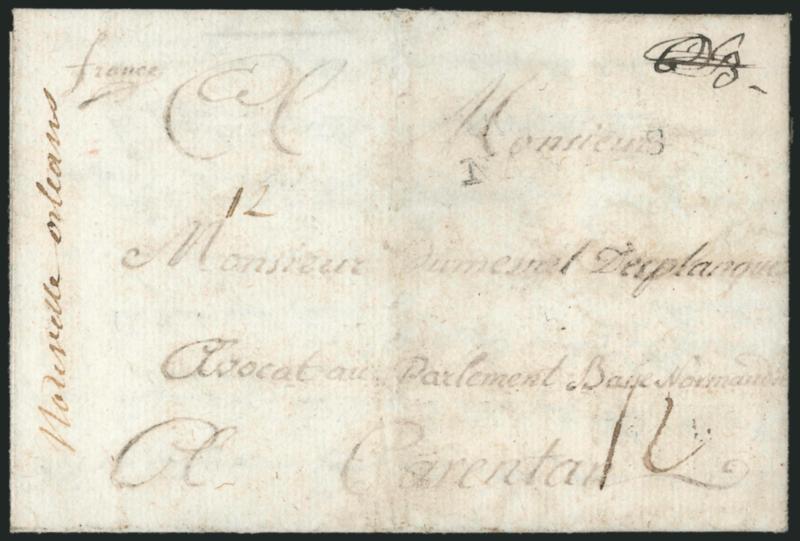 france
A Monsieur
12
Monsieur Dumesnil Desplanques
Avocat au Parlement Basse Normandie
A Carentan
12
Nouvelle orleans